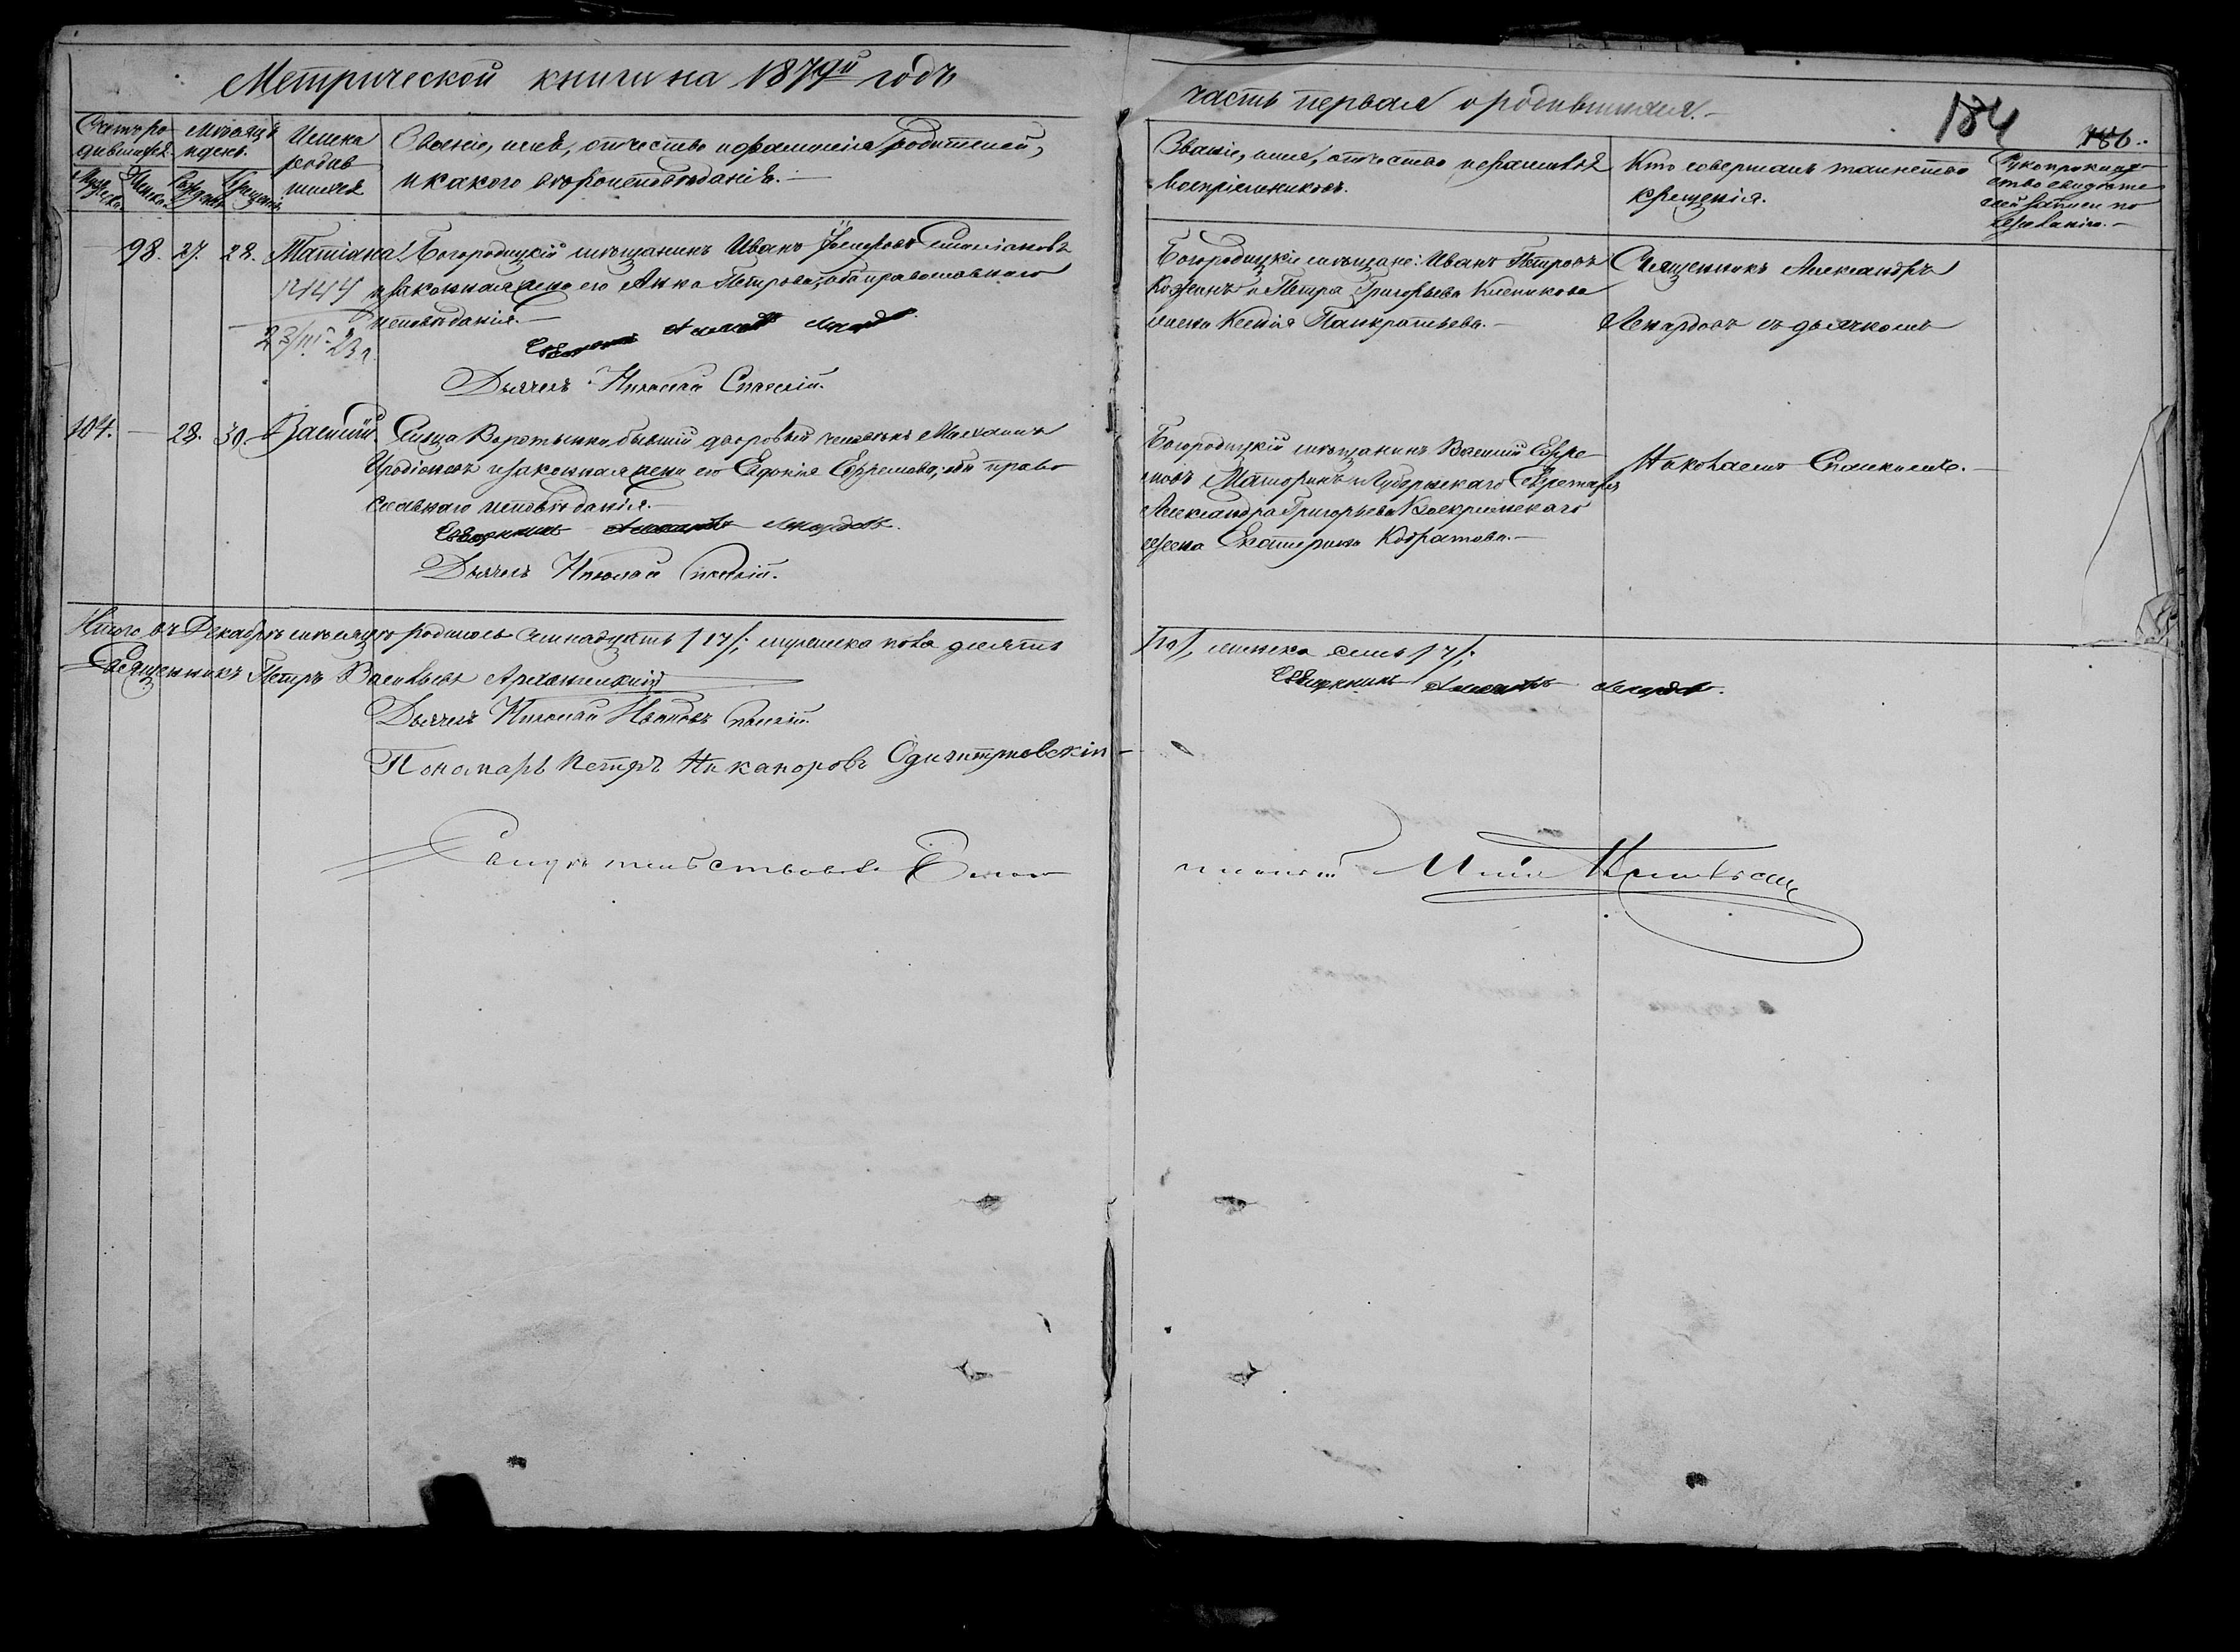 Метрической книги на 1879й годъ
Счетъ родившихся.
Мѣсяцъ и день.
Имена родившихся
Званіе, имя, отчество и фамилія родителей,
и какого вѣроисповѣданія.—
Мужеска.
Женска.
Рожденія
Крещенія.
98. 27. 28. Татіана
Богородицкій мѣщанинъ Иванъ
и законная жена его Анна Петрова, оба православнаго
исповѣданія.—
23/III 23 г.
Священникъ Александръ
Дьячекъ Николай Спасскій.
104. — 28. 30. Василій.
Сельца Воротынки, бывшій дворовый человѣкъ Михаилъ
Иродіоновъ и законная жена его Евдокія Ефремова; оба право
славнаго исповѣданія.—
Священникъ Александръ
Дьячекъ Николай Спасскій.
Итого въ Декабрѣ мѣсяцѣ родилось семнадцать /17/; мужеска пола десять
Священникъ Петръ Васильевъ Архангельскій
Дьячекъ Николай Ивановъ Спасскій.
Пономарь Петръ Никаноровъ Одигитріевскій
часть первая о родившихся.—
184
186.
Званіе, имя, отчество и фамилія
воспріемниковъ.
Кто совершалъ таинство
крещенія.
Рукоприкладство свидѣтелей записи по желанію.—
Богородицкіе мѣщане: Иванъ Петровъ
и Петра Григорьева
жена Ксенія Панкратьева.—
Священникъ Александръ
съ дьячкомъ
Богородицкій мѣщанинъ Василій Ефре
мовъ и Губернскаго Секретаря
Александра Григорьева Воскресенскаго
жена Екатерина.—
Николаемъ Спасскимъ.—
/10/, женска семь /7/;
Священникъ Александръ